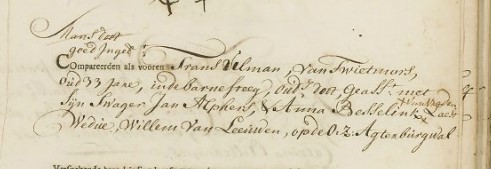 Mans doot
goed Inged
Compareerden als vooren Frans Velman, van
oud 33 Jare, inde Barnesteeg, ouds doot, geasst. met
Sijn Swager Jan Alphen, & Anna Besselink, Laest
Wedue, Willem van Leeuwen, op de O:Z: Agterburgwal